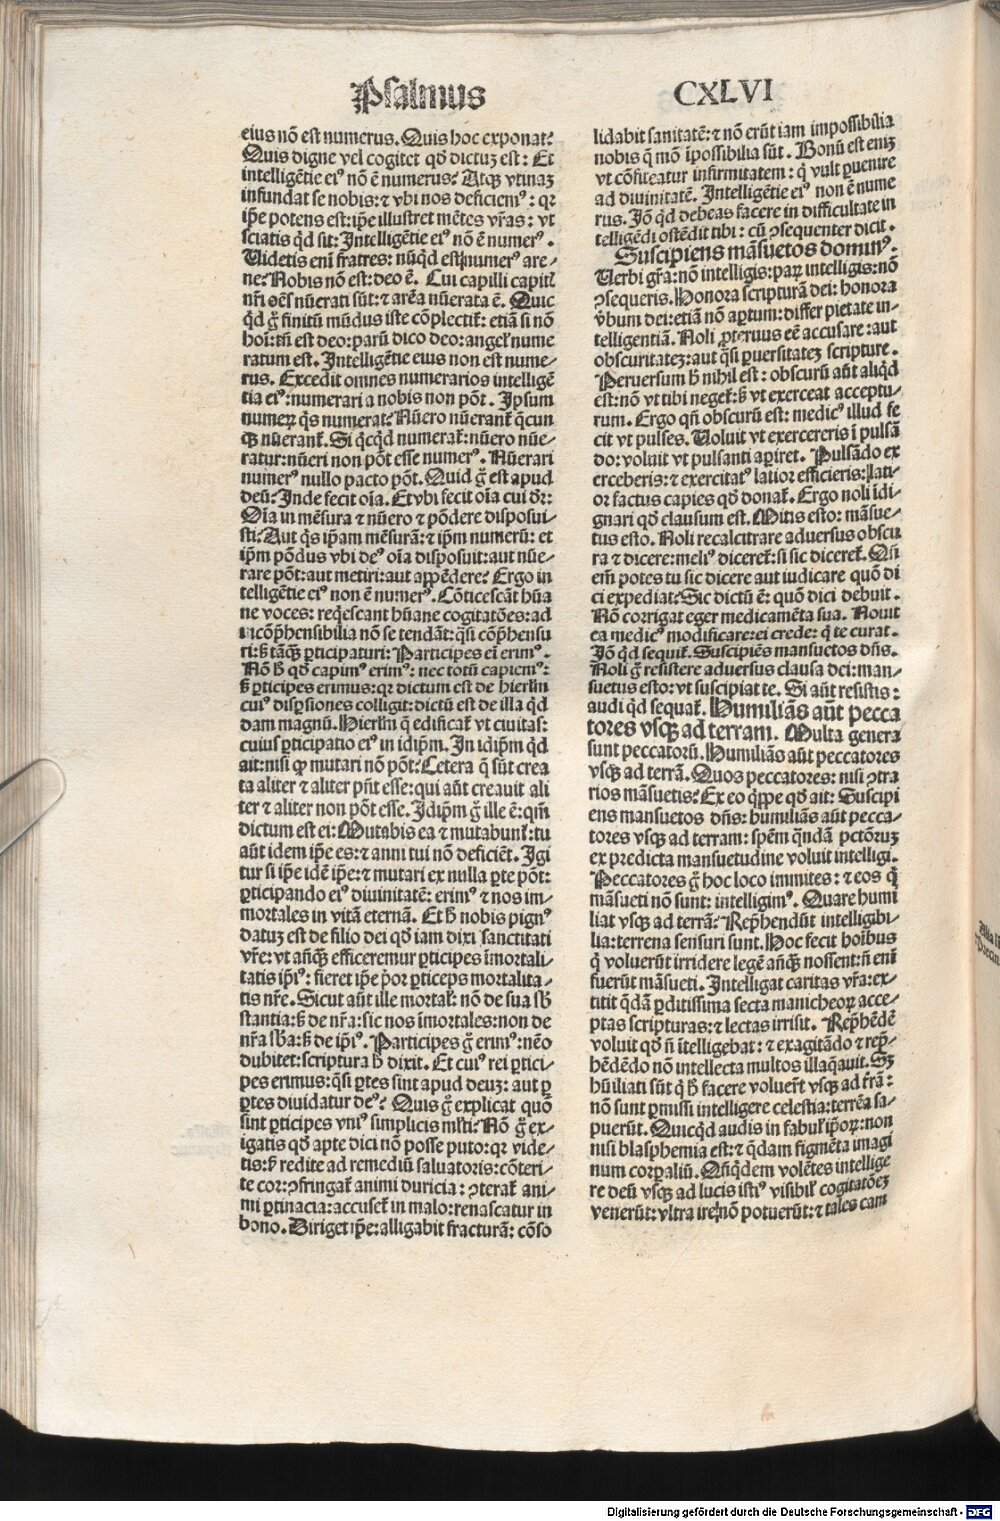 Psalmus CXLVI
eius nõ est numerus. Quis hoc exponat?
Quis digne vel cogitet qđ dictuʒ est: Et
intelligẽtie eiꝰ nõ ẽ numerus? Atqꝫ vtinaʒ
infundat se nobis: ⁊ vbi nos deficiemꝰ: qꝛ
ip̃e potens est: ip̃e illustret mẽtes vr̃as: vt
sciatis qd sit: Intelligẽtie eiꝰ nõ ẽ numerꝰ.
Videtis eni fratres: nũqd est numerꝰ are-
ne? Nobis nõ est: deo ẽ. Cui capilli capitꝭ
nr̃i oẽs nũerati sũt: ⁊ arẽa nũerata ẽ. Quic
qd g̃ finitũ mũdus iste cõplectiť: etiã si nõ
hoĩ: tñ est deo: parũ dico deo: angeꝭ nume
ratum est. Intelligẽtie eius non est nume-
rus. Excedit omnes numerarios intelligẽ
tia eiꝰ: numerari a nobis non põt. Ipsum
numeꝝ q̃s numerat? Nũero nũeranť q̃cun
qꝫ nũeranť. Si qcqd numerať: nũero nũe-
ratur: nũeri non põt esse numerꝰ. Nũerari
numerꝰ nullo pacto põt. Quid g̃ est apud
deũ? Inde fecit oĩa. Et vbi fecit oĩa cui dr̃:
Oĩa in mẽsura ⁊ nũero ⁊ põdere disposui-
sti? Aut q̃s ip̃am mẽsurã: ⁊ ip̃m numerũ: et
ip̃m põdus vbi deꝰ oĩa disposuit: aut nũe-
rare põt: aut metiri: aut appẽdere? Ergo in
telligẽtie eiꝰ non ẽ numerꝰ. Cõticescãt hũa
ne voces: reqescant hũane cogitatões: ad
incõp̃hensibilia nõ se tendãt: q̃si cõp̃hensu
ri: s̃ tãqꝫ ꝑticipaturi: Participes ei erimꝰ.
Nõ h̃ qđ capimꝰ erimꝰ: nec totũ capiemꝰ:
s̃ ꝑticipes erimus: qꝛ dictum est de hierlm
cuiꝰ disꝑsiones colligit: dictũ est de illa qđ
dam magnũ. Hierlm q̃ edificať vt ciuitas:
cuius ꝑticipatio eiꝰ in idip̃m. In idip̃m qd
ait: nisi qꝛ mutari nõ põt? Cetera q̃ sũt crea
ta aliter ⁊ aliter pñt esse: qui aũt creauit ali
ter ⁊ aliter non põt esse. Idip̃m g̃ ille ẽ: qm̃
dictum est ei: Mutabis ea ⁊ mutabunť: tu
aũt idem ip̃e es: ⁊ anni tui nõ deficiẽt. Igi
tur si ip̃e idẽ ip̃e: ⁊ mutari ex nulla ꝑte põt:
ꝑticipando eiꝰ diuinitatẽ: erimꝰ ⁊ nos im-
mortales in vitã eternã. Et h̃ nobis pignꝰ
datuʒ est de filio dei qđ iam dixi sanctitati
vr̃e: vt añqꝫ efficeremur ꝑticipes ĩmortali-
tatis ip̃iꝰ: fieret ip̃e p̃or ꝑticeps mortalita-
tis nr̃e. Sicut aũt ille mortaꝭ: nõ de sua sb̃
stantia: s̃ de nr̃a: sic nos ĩmortales: non de
nr̃a sb̃a: s̃ de ip̃iꝰ. Participes g̃ erimꝰ: nẽo
dubitet: scriptura h̃ dixit. Et cuiꝰ rei ꝑtici-
pes erimus: q̃si ꝑtes sint apud deuʒ: aut ꝑ
ꝑtes diuidatur deꝰ? Quis g̃ explicat quõ
sint ꝑticipes vniꝰ simplicis mlti? Nõ g̃ ex-
igatis qđ apte dici nõ posse puto: qꝛ vide-
tis: s̃ redite ad remediũ saluatoris: cõteri-
te cor: ꝯfringať animi duricia: ꝯteraꝭ ani-
mi ꝑtinacia: accuseť in malo: renascatur in
bono. Diriget ip̃e: alligabit fracturã: cõso
lidabit sanitatẽ: ⁊ nõ erũt iam impossibilia
nobis q̃ mõ ĩpossibilia sũt. Bonũ est eniʒ
vt cõfiteatur infirmitatem: q̃ vult ꝑuenire
ad diuinitatẽ. Intelligẽtie eiꝰ non ẽ nume
rus. Iõ qd debeas facere in difficultate in
telligẽdi ostẽdit tibi: cũ ꝯsequenter dicit.
Suscipiens mãsuetos dominꝰ.
Verbi gr̃a: nõ intelligis: paꝝ intelligis: nõ
ꝯsequeris. Honora scripturã dei: honora
v̾bum dei: etiã nõ aꝑtum: differ pietate in-
telligentiã. Noli proteruus eẽ accusare: aut
obscuritateʒ: aut q̃si ꝑuersitateʒ scripture.
Peruersum h̃ nihil est: obscurũ aũt aliqd
est: nõ vt tibi negeť: s̃ vt exerceat acceptu-
rum. Ergo qñ obscurũ est: medicꝰ illud fe
cit vt pulses. Voluit vt exercereris ĩ pulsã
do: voluit vt pulsanti aꝑiret. Pulsãdo ex
erceberis: ⁊ exercitatꝰ latior efficieris: lati-
or factus capies qđ donať. Ergo noli idi-
gnari qđ clausum est. Mitis esto: mãsue-
tus esto. Noli recalcitrare aduersus obscu
ra ⁊ dicere: meliꝰ dicereť: si sic dicereť. Qñ
em̃ potes tu sic dicere aut iudicare quõ di
ci expediat? Sic dictũ ẽ: quõ dici debuit.
Nõ corrigat eger medicamẽta sua. Nouit
ea medicꝰ modificare: ei crede: q̃ te curat.
Iõ qd sequiť. Suscipiẽs mansuetos dñs.
Noli g̃ resistere aduersus clausa dei: man-
suetus esto: vt suscipiat te. Si aũt resistis:
audi qd sequať. Humiliãs aũt pecca
tores vsqꝫ ad terram. Multa genera
sunt peccatorũ. Humiliãs aũt peccatores
vsqꝫ ad terrã. Quos peccatores: nisi ꝯtra
rios mãsuetis? Ex eo q̃ppe qđ ait: Suscipi
ens mansuetos dñs: humiliãs aũt pecca-
tores vsqꝫ ad terram: spẽm q̃ndã pctõruʒ
ex predicta mansuetudine voluit intelligi.
Peccatores g̃ hoc loco immites: ⁊ eos q̃
mãsueti nõ sunt: intelligimꝰ. Quare humi
liat vsqꝫ ad terrã? Rep̃hendũt intelligibi-
lia: terrena sensuri sunt. Hoc fecit hoĩbus
q̃ voluerũt irridere legẽ añqꝫ nossent: ñ eni
fuerũt mãsueti. Intelligat caritas vr̃a: ex-
titit q̃dã ꝑditissima secta manicheoꝝ acce-
ptas scripturas: ⁊ lectas irrisit. Rep̃hẽdẽ
voluit qđ ñ ĩtelligebat: ⁊ exagitãdo ⁊ rep̃-
hẽdẽdo nõ intellecta multos illaq̃auit. Sʒ
hũiliati sũt q̃ h̃ facere voluer̃t vsqꝫ ad ťrã:
nõ sunt ꝑmissi intelligere celestia: terrẽa sa-
puerũt. Quicqd audis in fabuꝭ ip̃oꝝ: non
nisi blasphemia est: ⁊ q̃dam figmẽta imagi
num corꝑaliũ. Qñqdem volẽtes intellige
re deũ vsqꝫ ad lucis istiꝰ visibiꝭ cogitatõeʒ
venerũt: vltra ire nõ potuerũt: ⁊ tales cam
Digitalisierung gefördert durch die Deutsche Forschungsgemeinschaft - DFG